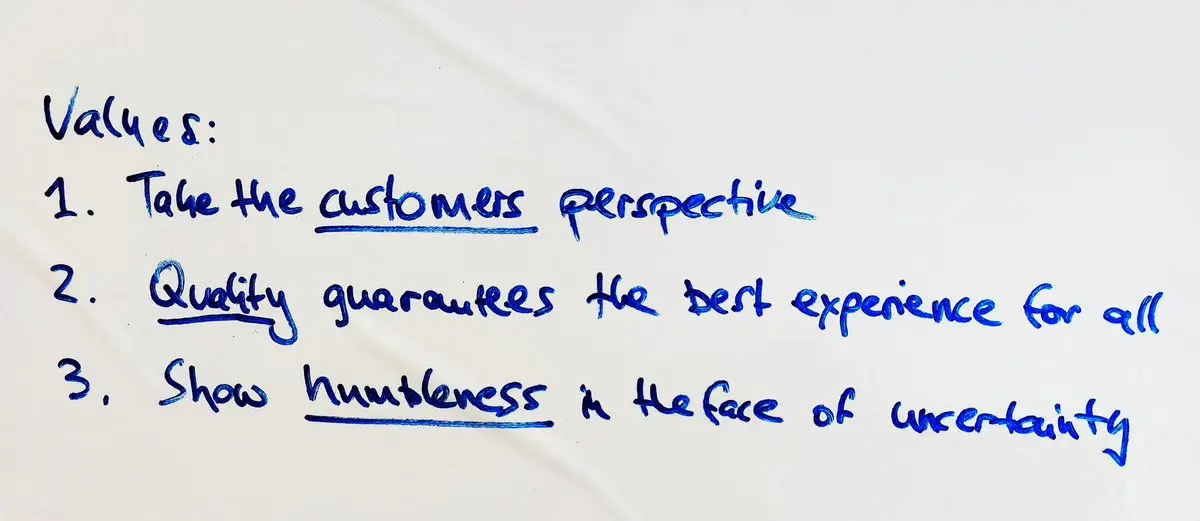 Values:
1. Take the customers perspective
2. Quality guarantees the best experience for all
3. Show humbleness in the face of uncertainty